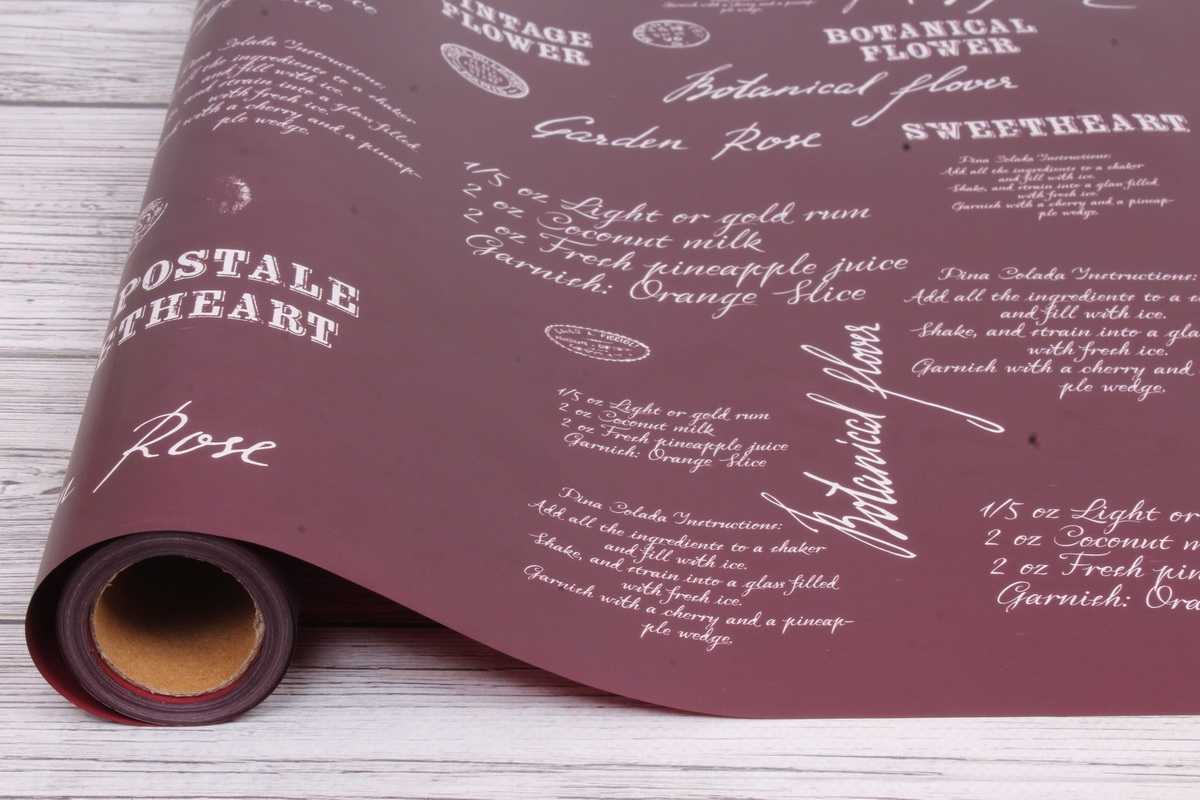 VINTAGE
FLOWER
BOTANICAL
FLOWER
Botanical flover
Garden Rose
SWEETHEART
Pina Colada Instructions:
Add all the ingredients to a shaker
and fill with ice.
Shake, and strain into a glass filled
with fresh ice.
Garnish with a cherry and a pineap-
ple wedge.
Colada Instructions:
the ingredients to a shaker
and fill with ice.
and strain into a glass filled
with fresh ice.
with a cherry and a pineap-
ple wedge.
1/5 oz Light or gold rum
2 oz Coconut milk
2 oz Fresh pineapple juice
Garnish: Orange Slice
POSTALE
ETHEART
Pina Colada Instructions:
Add all the ingredients to a
and fill with ice.
Shake, and strain into a gla
with fresh ice.
Garnish with a cherry and
ple wedge.
Botanical flover
Rose
1/5 oz Light or gold rum
2 oz Coconut milk
2 oz Fresh pineapple juice
Garnish: Orange Slice
Pina Colada Instructions:
Add all the ingredients to a shaker
and fill with ice.
Shake, and strain into a glass filled
with fresh ice.
Garnish with a cherry and a pineap-
ple wedge.
1/5 oz Light or
2 oz Coconut m
2 oz Fresh pin
Garnish: Ora